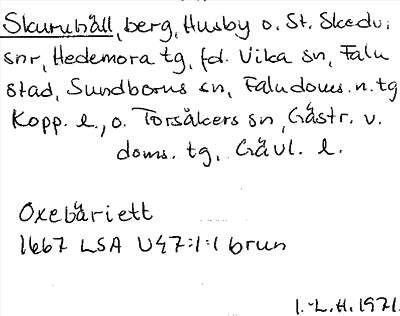 Skuruhäll, berg, Husby o. St. Skedvi
snr, Hedemora tg, fd. Vika sn, Falu
stad, Sundborns sn, Faludoms. n. tg
Kopp. l., o. Torsåkers sn, Gästr. v.
doms. tg, Gävl. l.
Oxebäriett
1667 LSA U47:1:1 brun
I.-L.H. 1971.